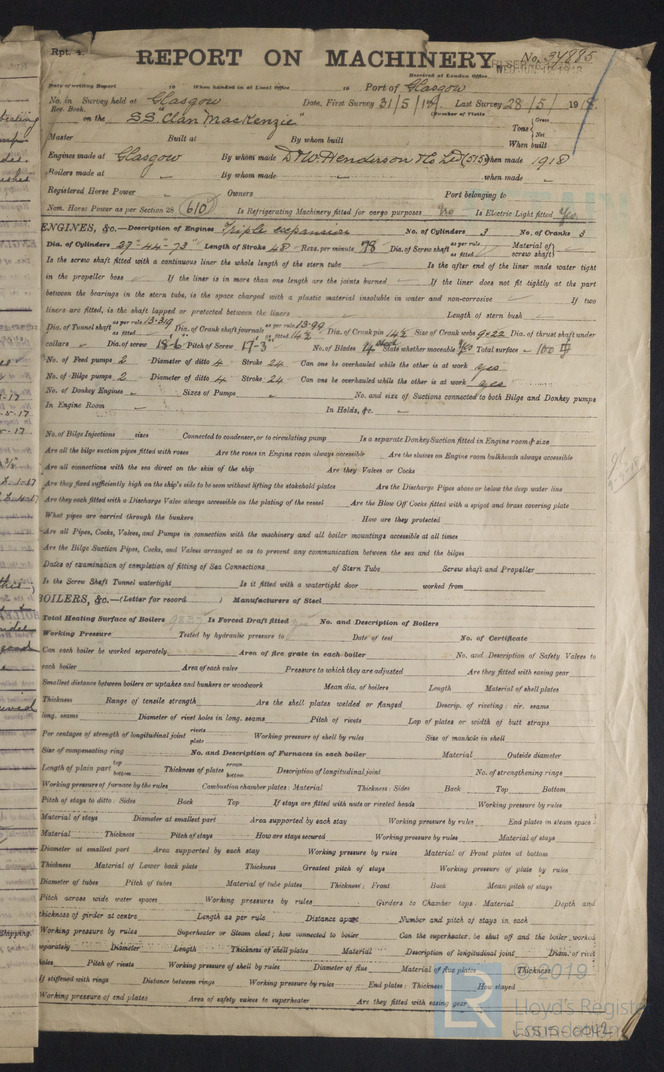 Rpt. 4.
REPORT ON MACHINERY
No. 34995
Received at London Office
Date of writing Report 19 When handed in at Local Office 19 Port of Glasgow
No. in Survey held at Glasgow Date, First Survey 31/5/17 Last Survey 28/5/1918
Reg. Book. (Number of Visits
on the S.S. Clan MacKenzie"
Tons { Gross Net
Master Built at By whom built When built
Engines made at Glasgow By whom made D & W. Henderson & Co Ld (515) when made 1918
Boilers made at By whom made when made
Registered Horse Power Owners Port belonging to
Nom. Horse Power as per Section 28 610 Is Refrigerating Machinery fitted for cargo purposes No Is Electric Light fitted Yes
ENGINES, &c.—Description of Engines Triple expansion No. of Cylinders 3 No. of Cranks 3
Dia. of Cylinders 27"-44"-73" Length of Stroke 48 Revs. per minute 78 Dia. of Screw shaft as per rule as fitted Material of screw shaft
Is the screw shaft fitted with a continuous liner the whole length of the stern tube Is the after end of the liner made water tight
in the propeller boss If the liner is in more than one length are the joints burned If the liner does not fit tightly at the part
between the bearings in the stern tube, is the space charged with a plastic material insoluble in water and non-corrosive If two
liners are fitted, is the shaft lapped or protected between the liners Length of stern bush
Dia. of Tunnel shaft as per rule 13.319 as fitted Dia. of Crank shaft journals as per rule 13.99 as fitted 14½ Dia. of Crank pin 14½ Size of Crank webs 9x22 Dia. of thrust shaft under
collars Dia. of screw 18-6 Pitch of Screw 17-3 No. of Blades 4 State whether moveable yes Total surface 100
No. of Feed pumps 2 Diameter of ditto 4 Stroke 24 Can one be overhauled while the other is at work yes
No. of Bilge pumps 2 Diameter of ditto 4 Stroke 24 Can one be overhauled while the other is at work yes
No. of Donkey Engines Sizes of Pumps No. and size of Suctions connected to both Bilge and Donkey pumps
In Engine Room In Holds, &c.
No. of Bilge Injections sizes Connected to condenser, or to circulating pump Is a separate Donkey Suction fitted in Engine room & size
Are all the bilge suction pipes fitted with roses Are the roses in Engine room always accessible Are the sluices on Engine room bulkheads always accessible
Are all connections with the sea direct on the skin of the ship Are they Valves or Cocks
Are they fixed sufficiently high on the ship's side to be seen without lifting the stokehold plates Are the Discharge Pipes above or below the deep water line
Are they each fitted with a Discharge Valve always accessible on the plating of the vessel Are the Blow Off Cocks fitted with a spigot and brass covering plate
What pipes are carried through the bunkers How are they protected
Are all Pipes, Cocks, Valves, and Pumps in connection with the machinery and all boiler mountings accessible at all times
Are the Bilge Suction Pipes, Cocks, and Valves arranged so as to prevent any communication between the sea and the bilges
Dates of examination of completion of fitting of Sea Connections of Stern Tube Screw shaft and Propeller
Is the Screw Shaft Tunnel watertight Is it fitted with a watertight door worked from
BOILERS, &c.—(Letter for record ) Manufacturers of Steel
Total Heating Surface of Boilers Is Forced Draft fitted No. and Description of Boilers
Working Pressure Tested by hydraulic pressure to Date of test No. of Certificate
Can each boiler be worked separately Area of fire grate in each boiler No. and Description of Safety Valves to
each boiler Area of each valve Pressure to which they are adjusted Are they fitted with easing gear
Smallest distance between boilers or uptakes and bunkers or woodwork Mean dia. of boilers Length Material of shell plates
Thickness Range of tensile strength Are the shell plates welded or flanged Descrip. of riveting: cir. seams
long. seams Diameter of rivet holes in long. seams Pitch of rivets Lap of plates or width of butt straps
Per centages of strength of longitudinal joint rivets plate Working pressure of shell by rules Size of manhole in shell
Size of compensating ring No. and Description of Furnaces in each boiler Material Outside diameter
Length of plain part top bottom Thickness of plates crown bottom Description of longitudinal joint No. of strengthening rings
Working pressure of furnace by the rules Combustion chamber plates: Material Thickness: Sides Back Top Bottom
Pitch of stays to ditto: Sides Back Top If stays are fitted with nuts or riveted heads Working pressure by rules
Material of stays Diameter at smallest part Area supported by each stay Working pressure by rules End plates in steam space:
Material Thickness Pitch of stays How are stays secured Working pressure by rules Material of stays
Diameter at smallest part Area supported by each stay Working pressure by rules Material of Front plates at bottom
Thickness Material of Lower back plate Thickness Greatest pitch of stays Working pressure of plate by rules
Diameter of tubes Pitch of tubes Material of tube plates Thickness: Front Back Mean pitch of stays
Pitch across wide water spaces Working pressures by rules Girders to Chamber tops: Material Depth and
thickness of girder at centre Length as per rule Distance apart Number and pitch of stays in each
Working pressure by rules Superheater or Steam chest; how connected to boiler Can the superheater be shut off and the boiler worked
separately Diameter Length Thickness of shell plates Material Description of longitudinal joint Diam. of rivet
holes Pitch of rivets Working pressure of shell by rules Diameter of flue Material of flue plates Thickness
If stiffened with rings Distance between rings Working pressure by rules End plates: Thickness How stayed
Working pressure of end plates Area of safety valves to superheater Are they fitted with easing gear
© 2019
Lloyd's Register
Foundation